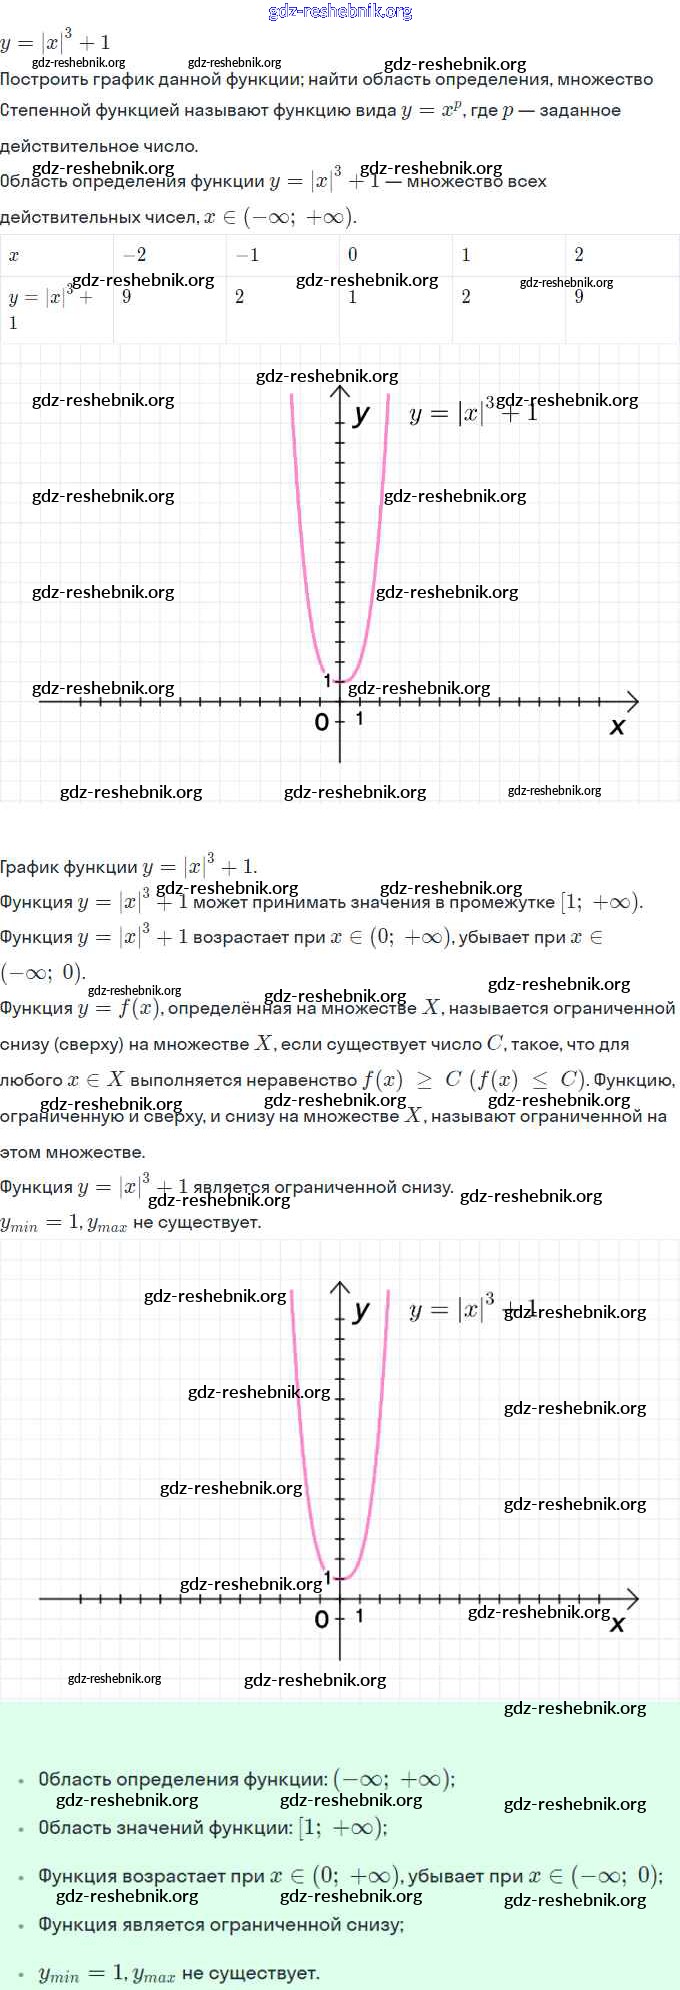 gdz-reshebnik.org
y = |x|³ + 1
gdz-reshebnik.org gdz-reshebnik.org gdz-reshebnik.org
Построить график данной функции; найти область определения, множество
Степенной функцией называют функцию вида y = xᵖ, где p — заданное
действительное число.
gdz-reshebnik.org gdz-reshebnik.org
Область определения функции y = |x|³ + 1 — множество всех
действительных чисел, x ∈ (−∞; +∞).
x −2 −1 0 1 2
gdz-reshebnik.org gdz-reshebnik.org gdz-reshebnik.org
y = |x|³ + 9 2 1 2 9
1
gdz-reshebnik.org
gdz-reshebnik.org gdz-reshebnik.org
y y = |x|³ + 1
gdz-reshebnik.org gdz-reshebnik.org
gdz-reshebnik.org gdz-reshebnik.org
1
gdz-reshebnik.org gdz-reshebnik.org
0 1 x
gdz-reshebnik.org gdz-reshebnik.org gdz-reshebnik.org
График функции y = |x|³ + 1.
gdz-reshebnik.org gdz-reshebnik.org
Функция y = |x|³ + 1 может принимать значения в промежутке [1; +∞).
Функция y = |x|³ + 1 возрастает при x ∈ (0; +∞), убывает при x ∈
(−∞; 0).
gdz-reshebnik.org gdz-reshebnik.org gdz-reshebnik.org
Функция y = f(x), определённая на множестве X, называется ограниченной
снизу (сверху) на множестве X, если существует число C, такое, что для
любого x ∈ X выполняется неравенство f(x) ≥ C (f(x) ≤ C). Функцию,
gdz-reshebnik.org gdz-reshebnik.org gdz-reshebnik.org
ограниченную и сверху, и снизу на множестве X, называют ограниченной на
этом множестве.
Функция y = |x|³ + 1 является ограниченной снизу.
gdz-reshebnik.org gdz-reshebnik.org
y_min = 1, y_max не существует.
gdz-reshebnik.org gdz-reshebnik.org
y y = |x|³ + 1
gdz-reshebnik.org gdz-reshebnik.org
gdz-reshebnik.org gdz-reshebnik.org
1
gdz-reshebnik.org gdz-reshebnik.org
0 1 x
gdz-reshebnik.org gdz-reshebnik.org
gdz-reshebnik.org
• Область определения функции: (−∞; +∞);
gdz-reshebnik.org gdz-reshebnik.org gdz-reshebnik.org
• Область значений функции: [1; +∞);
• Функция возрастает при x ∈ (0; +∞), убывает при x ∈ (−∞; 0);
gdz-reshebnik.org gdz-reshebnik.org gdz-reshebnik.org
• Функция является ограниченной снизу;
• y_min = 1, y_max не существует.